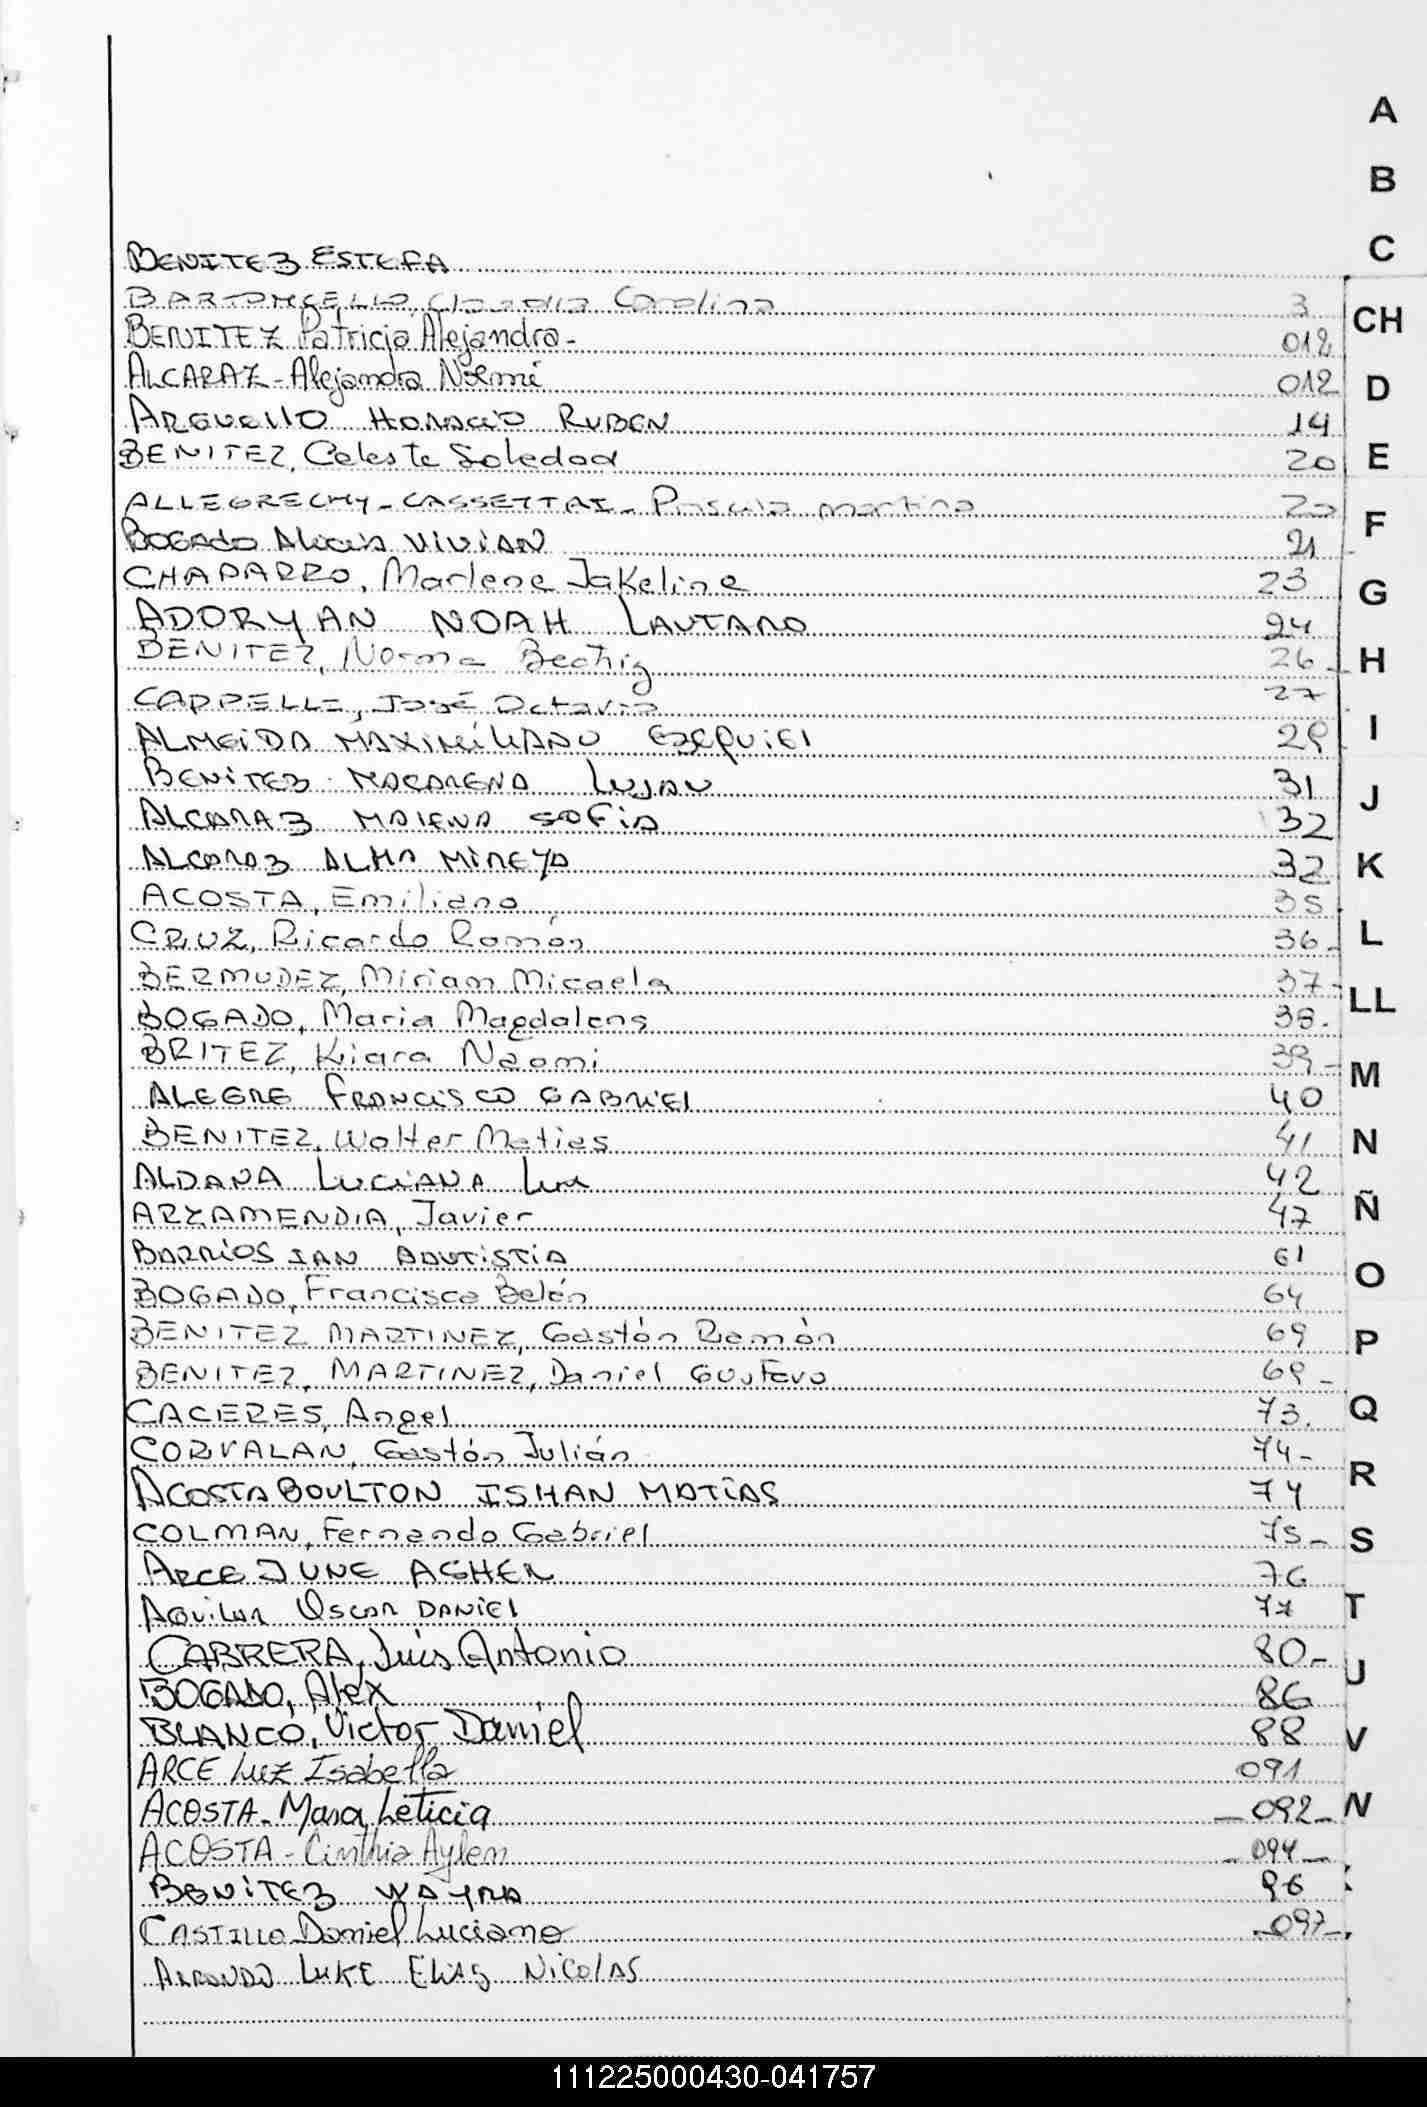 BENITEZ ESTEFA
Carolina 3
BENITEZ Patricia Alejandra- 012
ALCARAZ-Alejandra Noemi 012
ARGUELLO HORACIO RUBEN 14
BENITEZ, Celeste Soledad 20
ALLEGRECHY-CASSETTAI- martina 20
BOGADO Alicia VIVIAN 21
CHAPARRO, Marlene Jakeline 23
ADORYAN NOAH LAUTARO 24
BENITEZ, Norma Beatriz 26-
CAPPELLI, José Octavio 27
ALMEIDA MAXIMILIANO EZEQUIEL 29
BENITEZ MACARENA LUJAN 31
ALCARAZ MALENA SOFIA 32
ALCARAZ ALMA MIREYA 32
ACOSTA, Emiliano 35
CRUZ, Ricardo Román 36-
BERMUDEZ, Miriam Micaela 37-
BOGADO, Maria Magdalena 38.
BRITEZ, Kiara Naomi 39-
ALEGRE FRANCISCO GABRIEL 40
BENITEZ, Walter Matias 41
ALDANA LUCIANA Luz 42
ARZAMENDIA, Javier 47
BARRIOS IAN BAUTISTIA 61
BOGADO, Francisca Belén 64
BENITEZ MARTINEZ, Gastón Ramón 69
BENITEZ, MARTINEZ, Daniel Gustavo 69-
CACERES, Angel 73.
CORVALAN, Gastón Julián 74-
ACOSTA BOULTON ISHAN MATIAS 74
COLMAN, Fernando Gabriel 75-
ARCE JUNE AGHEN 76
AGUILAR OSCAR DANIEL 77
CABRERA, Luis Antonio 80-
BOGADO, Alex 86
BLANCO, Victor Daniel 88
ARCE Luz Isabella 091
ACOSTA- Mara Leticia -092-
ACOSTA- Cinthia Aylen -094-
BENITEZ WAYRA 96
CASTILLO Daniel Luciano -097-
LUKE ELIAS NICOLAS
A
B
C
CH
D
E
F
G
H
I
J
K
L
LL
M
N
Ñ
O
P
Q
R
S
T
U
V
111225000430-041757